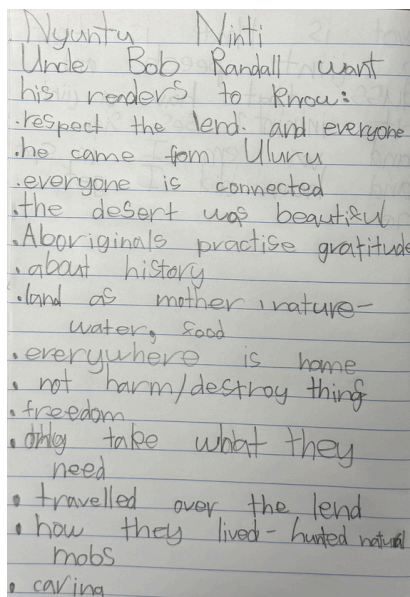 Nyuntu Ninti
Uncle Bob Randall want
his renders to know:
·respect the lend. and everyone
·he came from Uluru
·everyone is connected
·the desert was beautiful
·Aboriginals practise gratitude
·about history
·land as mother, nature-
water, food
·everywhere is home
·not harm/destroy thing
·freedom
·only take what they
need
·travelled over the lend
·how they lived - hunted natural
mobs
·caring